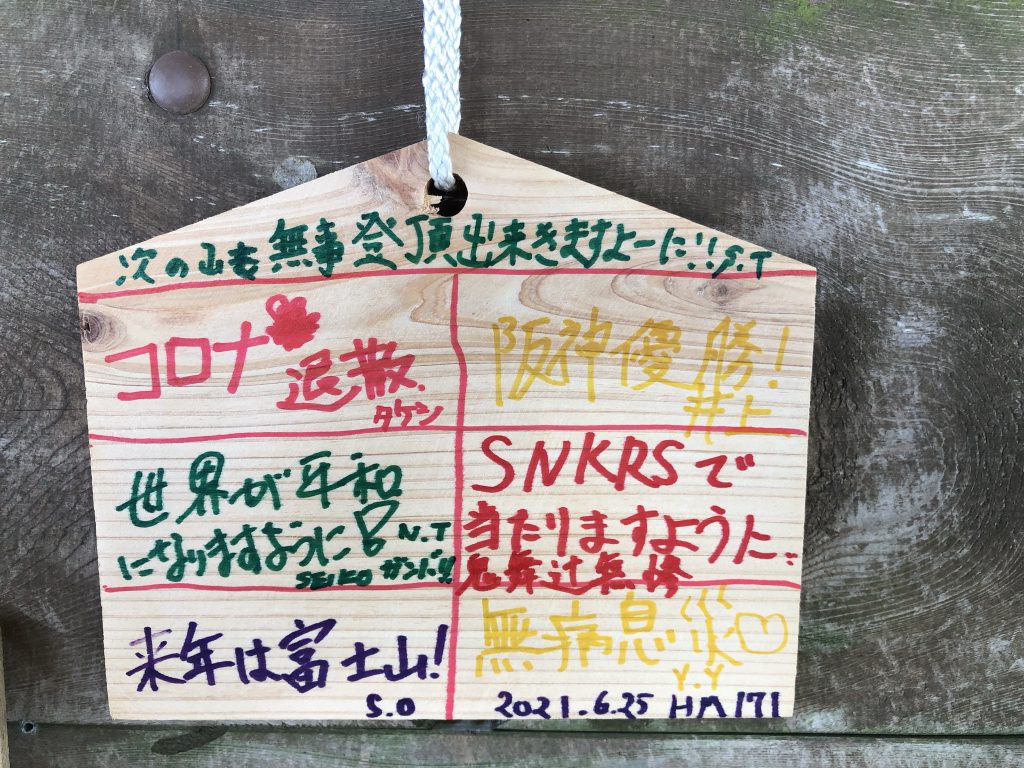 次の山も無事登頂出来きますよーに!! S.T
コロナ
退散.
タケシ
阪神優勝!
井上
世界が平和
になりますように!! N.T
SEIKO ガンバ!!
SNKRSで
当たりますように..
鬼舞辻無惨
来年は富士山!
S.O
無病息災♡
Y.Y
2021.6.25 HM171